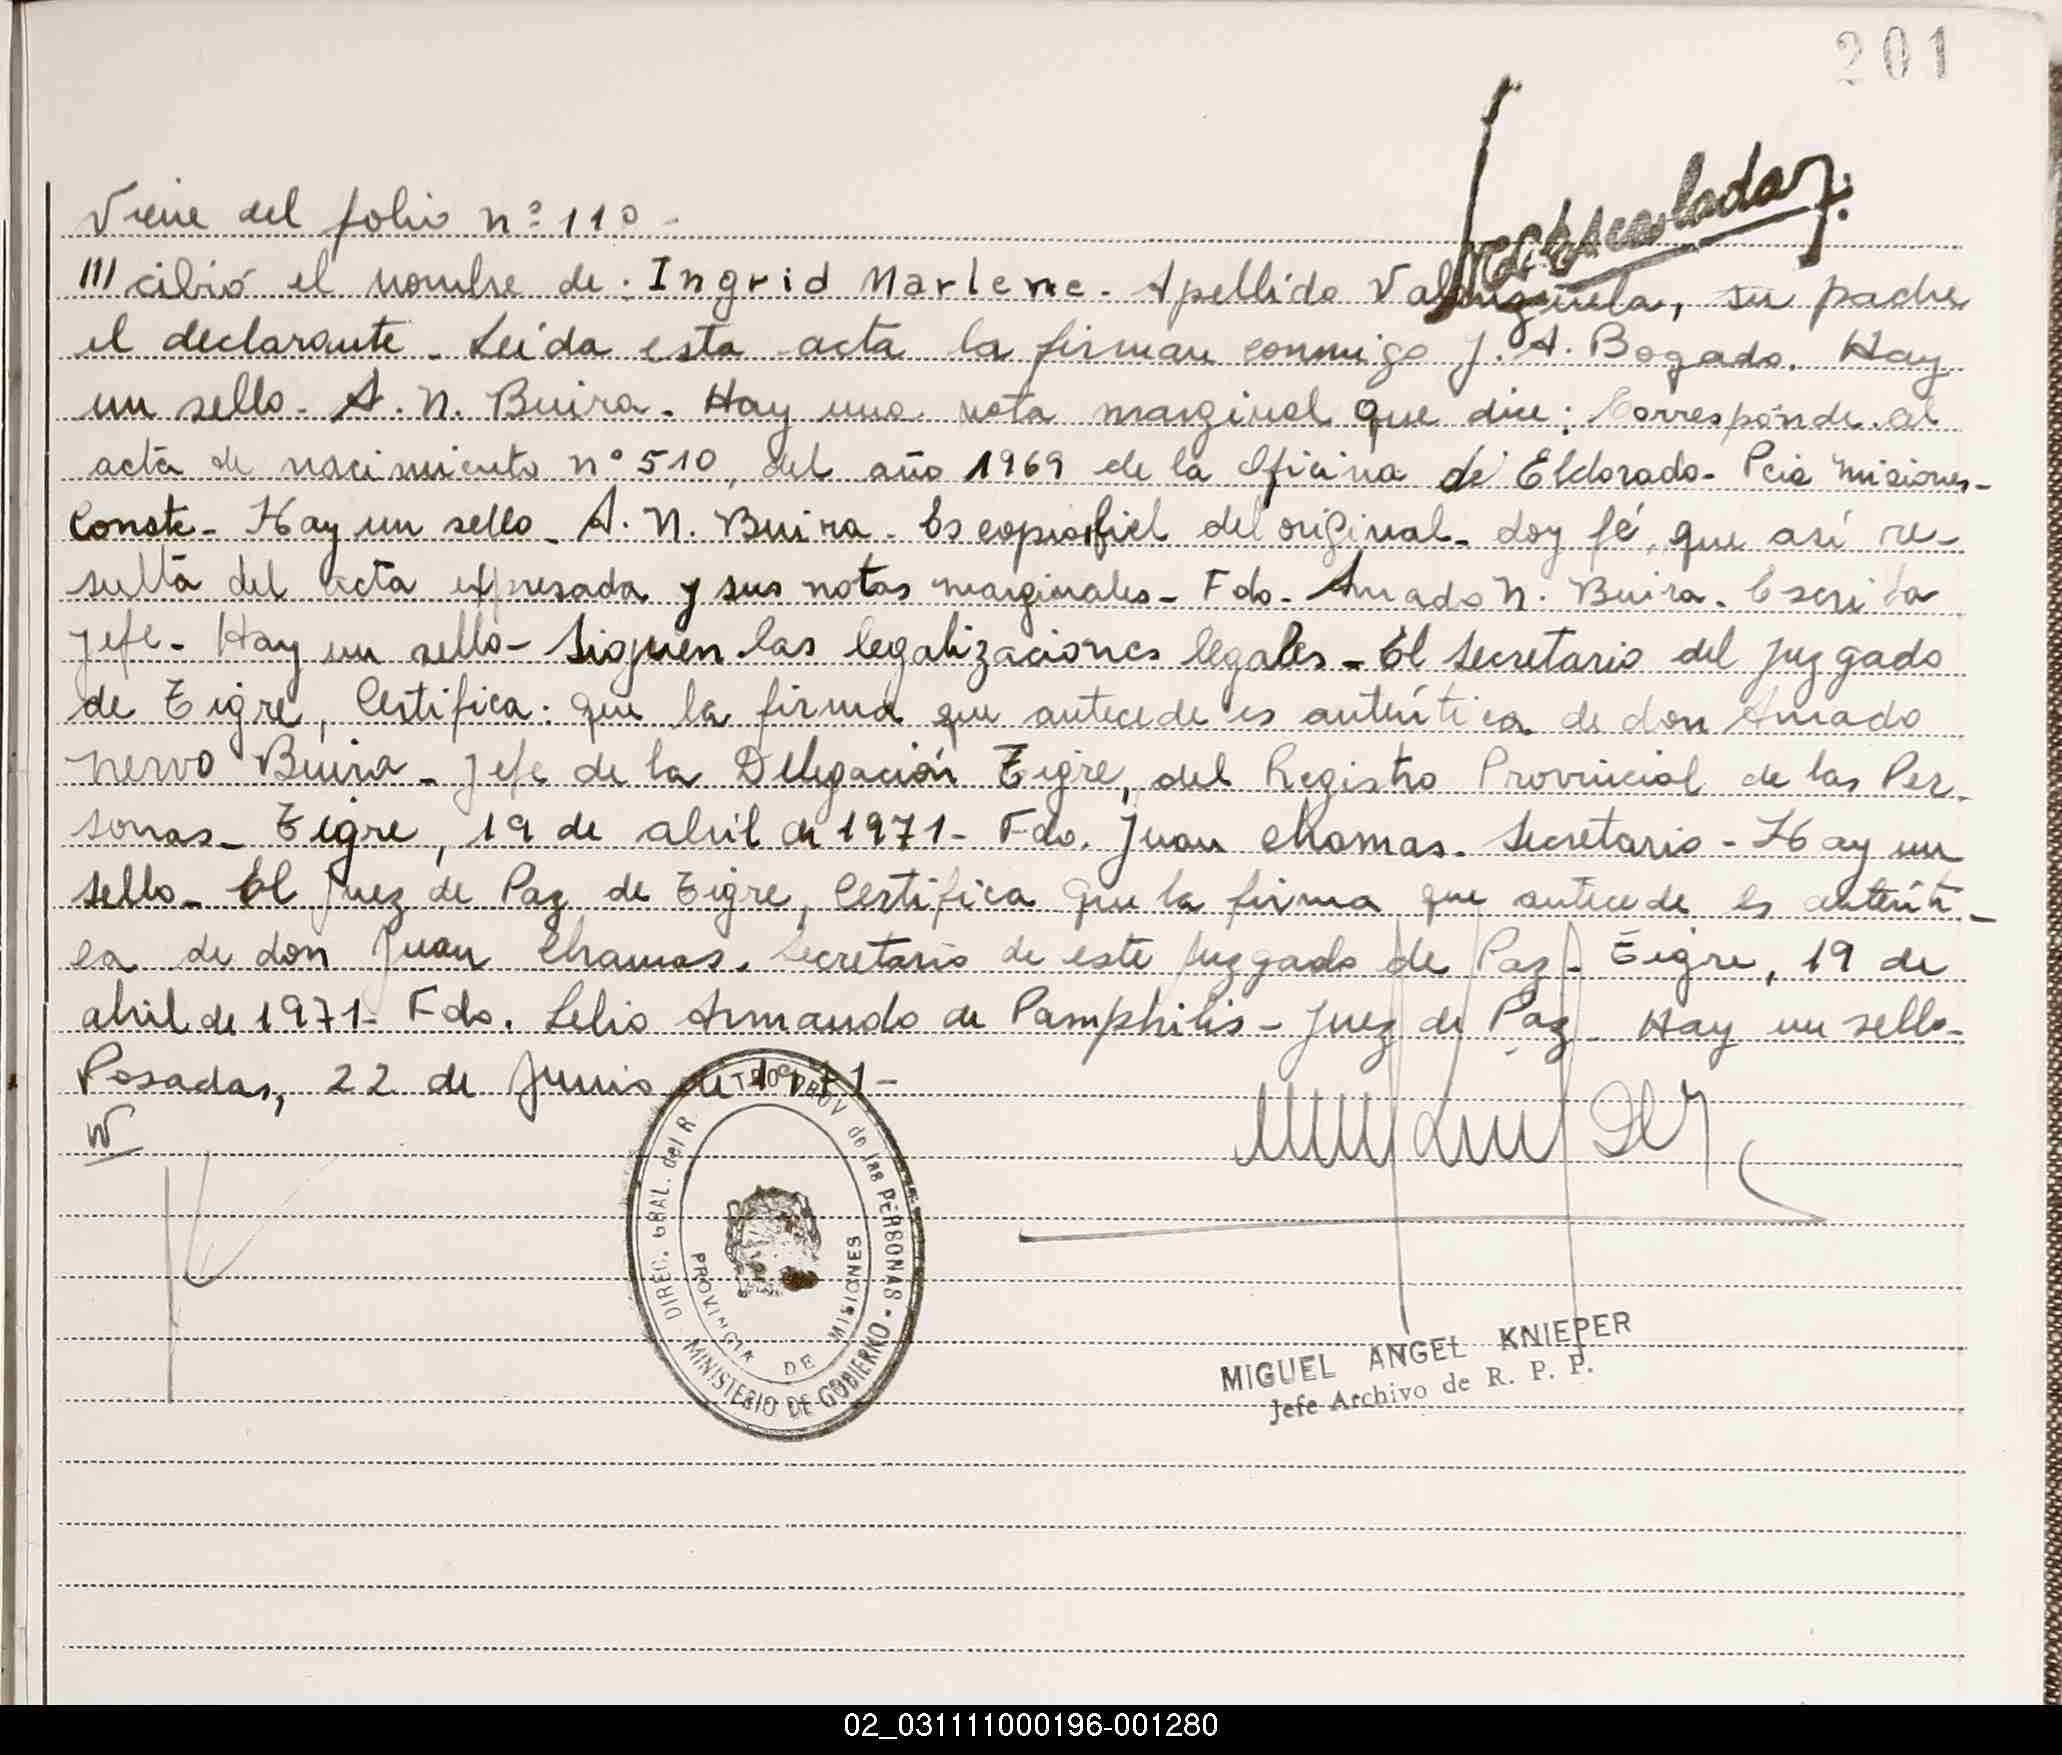 201
Viene del folio nº 110-
/// cibió el nombre de: Ingrid Marlene. Apellido Valenzuela, su padre
el declarante. Leída esta acta la firman conmigo J. A. Bogado. Hay
un sello. A. N. Buira. Hay una nota marginal que dice: Corresponde al
acta de nacimiento nº 510, del año 1969 de la Oficina de Eldorado- Pcia Misiones-
Conste- Hay un sello- A. N. Buira. Es copia fiel del original- doy fé, que así re-
sulta del acta expresada y sus notas marginales- Fdo- Amado N. Buira.
Jefe- Hay un sello- Siguen las legalizaciones legales- El Secretario del Juzgado
de Tigre, Certifica: que la firma que antecede es auténtica de don Amado
Nervo Buira- Jefe de la Delegación Tigre, del Registro Provincial de las Per-
sonas- Tigre, 19 de abril de 1971- Fdo. Juan Chamas. Secretario- Hay un
sello- El Juez de Paz de Tigre, Certifica que la firma que antecede es auténti-
ca de don Juan Chamas. Secretario de este Juzgado de Paz- Tigre, 19 de
abril de 1971- Fdo. Lelio Armando de Pamphilis- Juez de Paz- Hay un sello-
Posadas, 22 de Junio de 1971-
DIREC. GRAL. del R. PROV de las PERSONAS
MINISTERIO DE GOBIERNO
PROVINCIA DE MISIONES
MIGUEL ANGEL KNIEPER
Jefe Archivo de R. P. P.
02_031111000196-001280